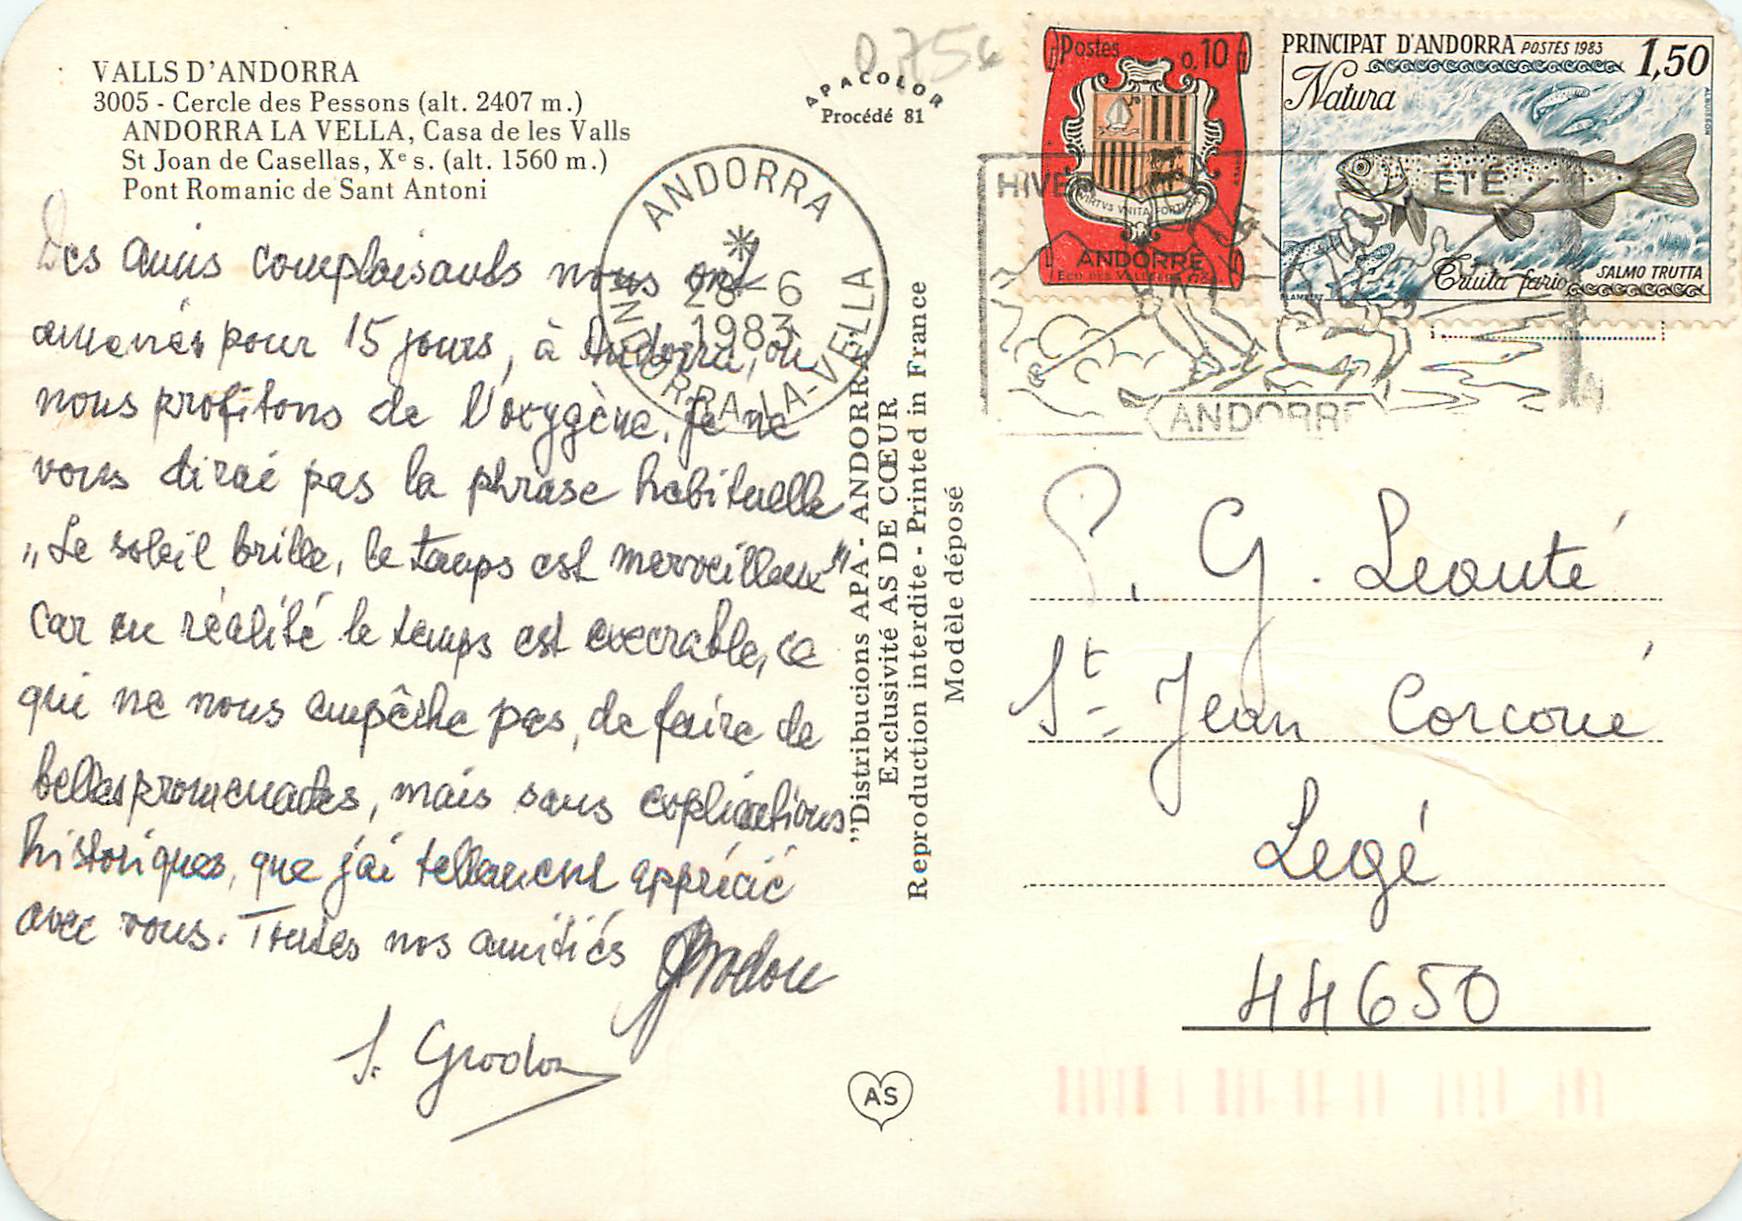 VALLS D'ANDORRA
3005 - Cercle des Pessons (alt. 2407 m.)
ANDORRA LA VELLA, Casa de les Valls
St Joan de Casellas, Xᵉ s. (alt. 1560 m.)
Pont Romanic de Sant Antoni
Des amis complaisants nous ont
amenés pour 15 jours, à Andorre, où
nous profitons de l'oxygène. Je ne
vous dirai pas la phrase habituelle
„Le soleil brille, le temps est merveilleux"
car en réalité le temps est execrable, ce
qui ne nous empêche pas, de faire de
belles promenades, mais sans explications
historiques, que j'ai tellement apprécié
avec vous. Toutes nos amitiés
Grodou
S. Grodou
0.75€
APACOLOR
Procédé 81
ANDORRA
28-6
1983
ANDORRA-LA-VELLA
"Distribucions APA - ANDORRA
Exclusivité AS DE CŒUR
Reproduction interdite - Printed in France
Modèle déposé
AS
Postes 0,10
VIRTVS VNITA FORTIOR
ANDORRE
PRINCIPAT D'ANDORRA POSTES 1983 1,50
Natura
ALBUISSON
SALMO TRUTTA
Truita fario
HIVER
ÉTÉ
ANDORRE
P. G. Leouté
St Jean Corcoué
Legé
44650